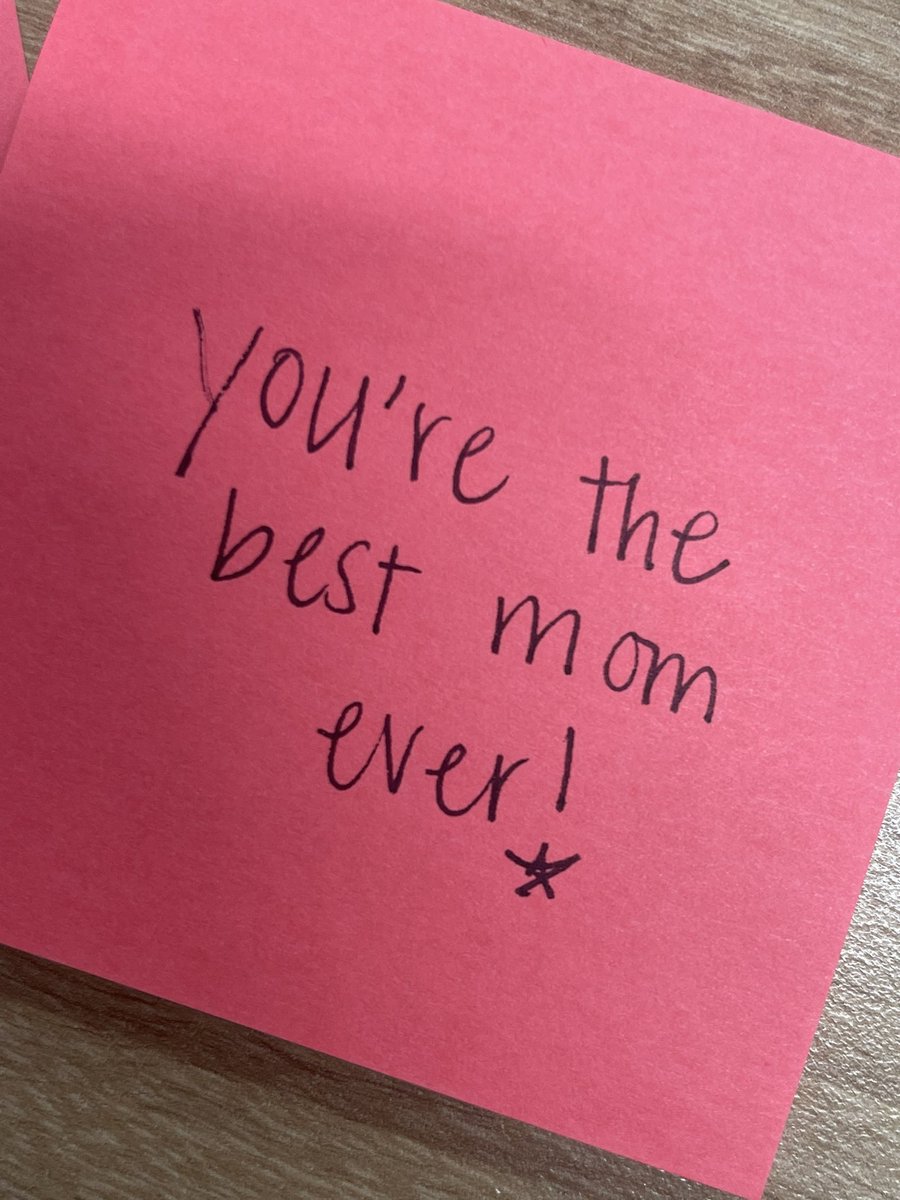 you're the
best mom
ever!